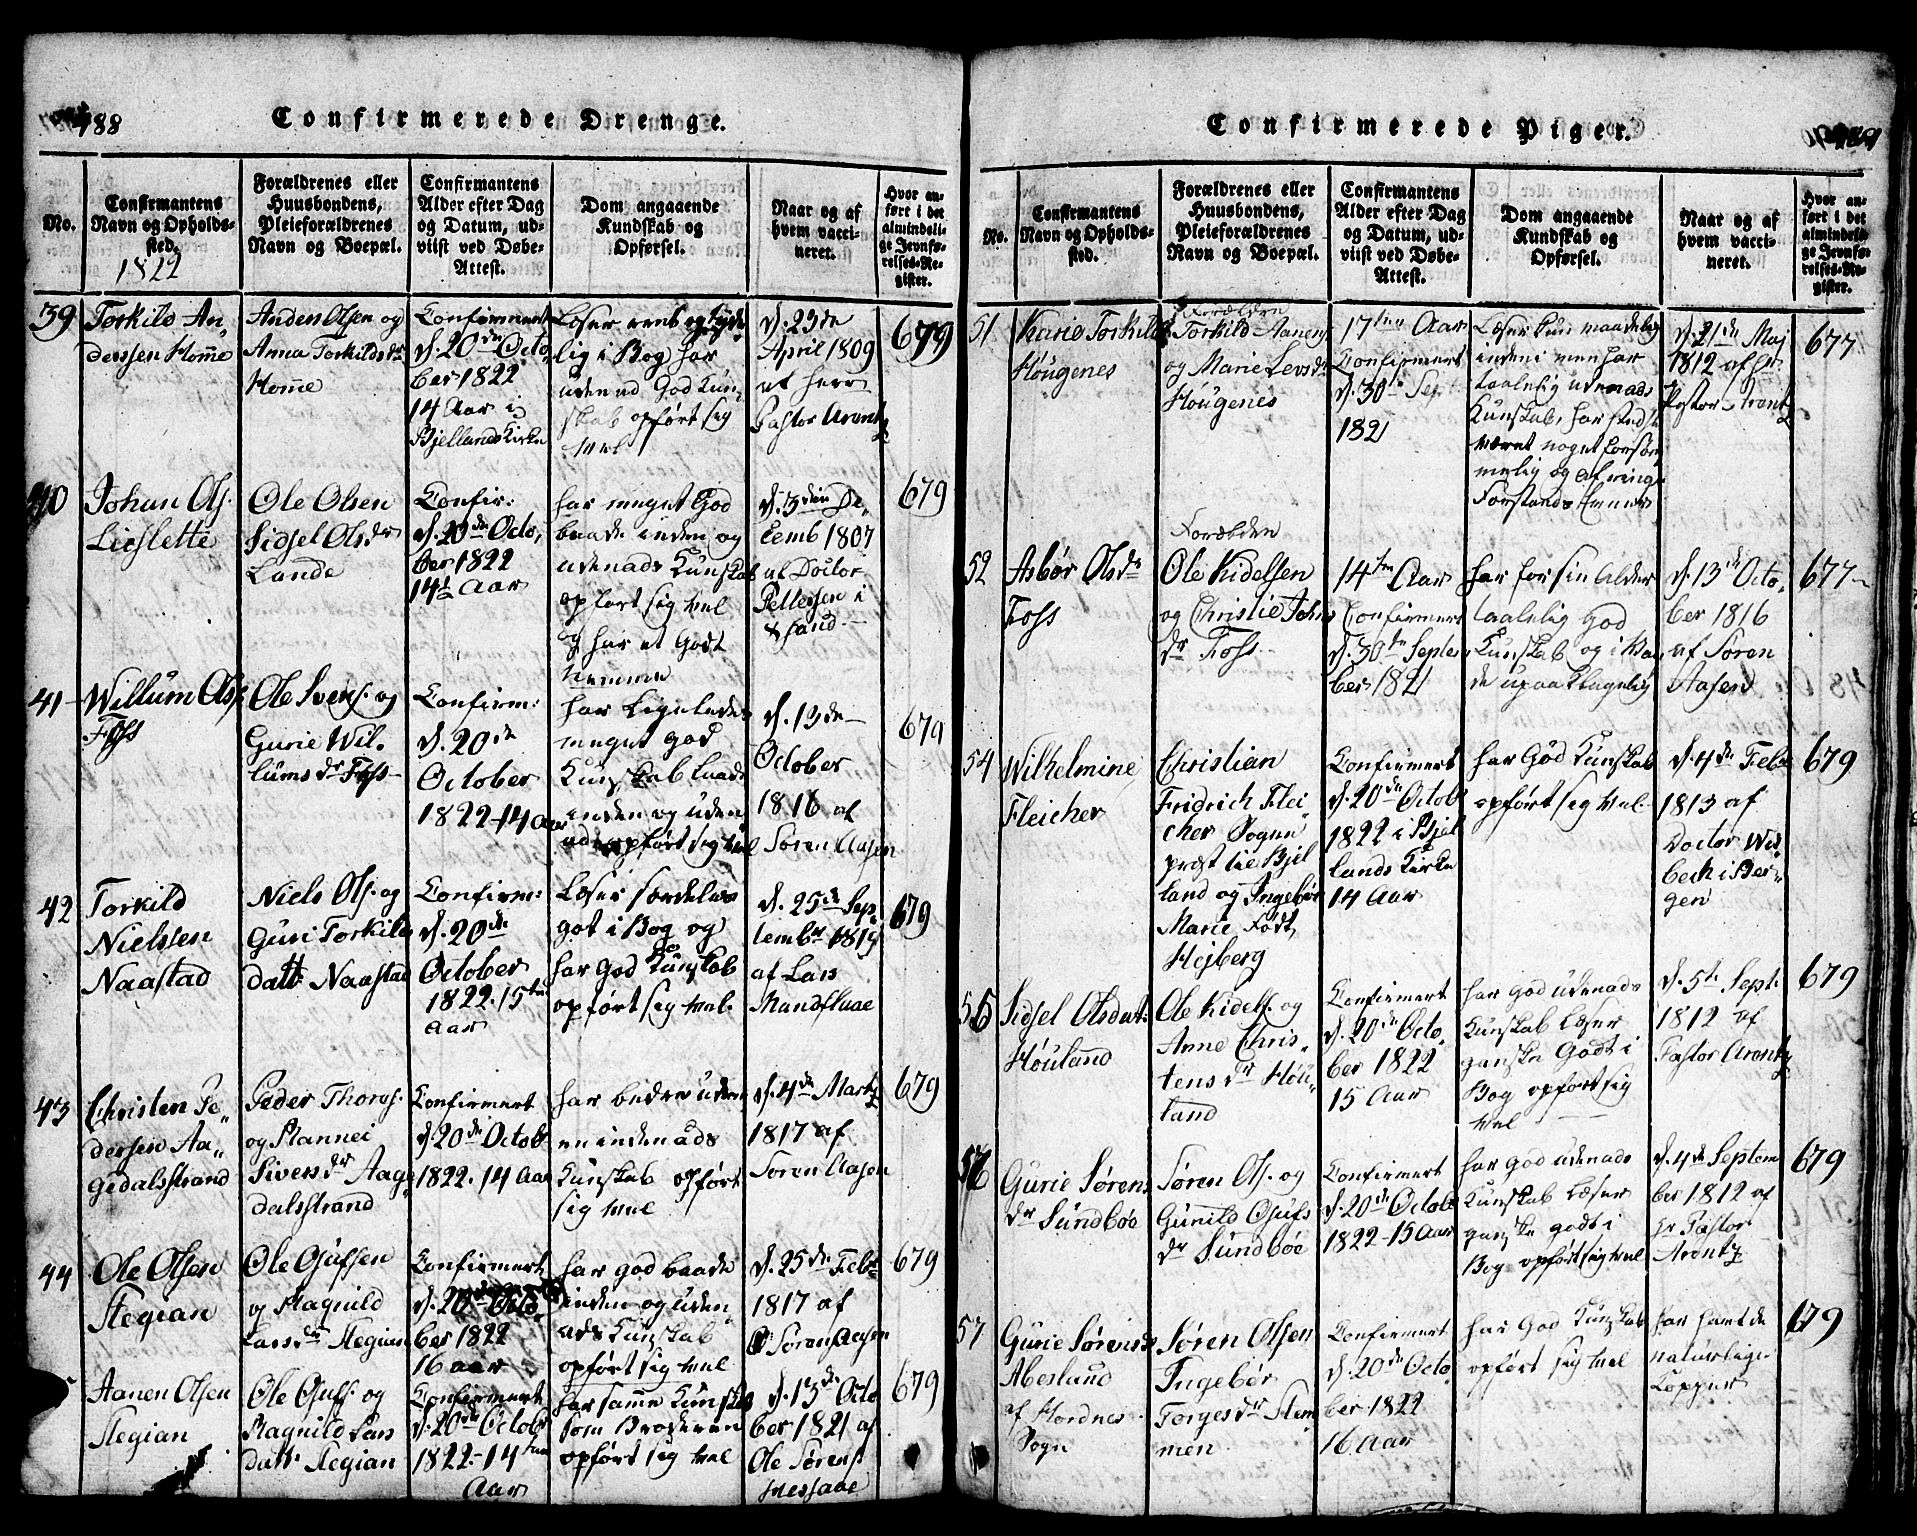 488
Confirmerede Drenge.
No.
Confirmantens
Navn og Opholds-
sted.
1822
Forældrenes eller
Huusbondens,
Pleieforældrenes
Navn og Boepæl.
Confirmantens
Alder efter Dag
og Datum, ud-
viist ved Døbe-
Attest.
Dom angaaende
Kundskab og
Opførsel.
Naar og af
hvem vacci-
neret.
Hvor an-
ført i det
almindeli-
ge Jevnfø-
relses-Re-
gister.
39
Torkild An„
derssen Home
Anders Olsen og
Anna Torkildsdr
Home
Confirmert
d. 20de Octo„
ber 1822
14 Aar i
Bjellands Kirke
Læser rent og tyde
lig i Bog har
udenad God Kun„
skab opført sig
vel
d. 23de
April 1809
af herr
Pastor Arentz
679
40
Johan Ols.
Lieslette
Ole Olsen
Sidsel Olsdr
Lande
Confir:
d. 20de Octo,
ber 1822
14½ Aar
har meget God
baade inden og
udenads Kunskab
opført sig vel
og har et Godt
Nemme
d. 3den De„
cemb 1807
af Doctor
Pettersen i
679
41
Willum Ols.
Foss
Ole Svens. og
Gurie Wil„
lumsdr Foss
Confirm:
d. 20de
October
1822 - 14 Aar
har Ligeledes
meget god
Kunskab baade
inden og uden
ads opført sig vel
d. 13de
October
1816 af
Søren Aasen
679
42
Torkild
Nielssen
Naastad
Niels Ols. og
Guri Torkilds
datt. Naastad
Confirm:
d. 20de
October
1822. 15ten
Aar
Læser særdeles
got i Bog og
har God Kunskab
opført sig vel.
d. 25de Sep„
tembr 1819
af Lars
Mandfluae
679
43
Christen Pe„
dersen Aa„
gedalsstrand
Peder Thores.
og Mannei
Siversdr Aage
dalsstrand
Confirmert
d. 20de Octobr
1822. 14 Aar
har bedre uden
en inden ads
Kunskab opført
sig vel
d. 4de Martz
1817 af
Søren Aasen
679
44
Ole Olsen
Stegian
Ole Gufsen
og Magnild
Larsdr Stegian
Confirmert
d. 20de Octo„
ber 1822
16 aar
har god baade
inden og uden
ads Kunskab
opført sig vel
d. 25de Febr
1817 af
Søren Aasen
679
Aanen Olsen
Stegian
Ole Gufs. og
Magnild Lars
datt. Stegian
Confirmert
d. 20de Octobr
1822 - 14ten
Aar
har samme Kunskab
som Broderen
opført sig vel
d. 13de Octo
ber 1821 af
Ole Sørens.
679
Confirmerede Piger.
No.
Confirmantens
Navn og Opholds-
sted.
Forældrenes eller
Huusbondens,
Pleieforældrenes
Navn og Boepæl.
Confirmantens
Alder efter Dag
og Datum, ud-
viist ved Døbe-
Attest.
Dom angaaende
Kundskab og
Opførsel.
Naar og af
hvem vacci-
neret.
Hvor an-
ført i det
almindeli-
ge Jevnfø-
relses-Re-
gister.
51
Karie Torkilds
Høugenes
Forælder
Torkild Aanens
og Marie Levsdr
Høugenes
17ten Aar
Confirmert
d. 30te Sept
1821
Læser kun maadelig
indeni men har
taalelig udenads
Kunskab, har stedse
været noget forsøm
melig og af ringe
Forstands Emner
d. 21de Maj
1812 af Hr
Pastor Arentz
677
52
Asbør Olsdr
Foss
Forælder
Ole Kidelsen
og Christie Johns
dr Foss
14ten Aar
Confirmert
d. 30te Septem
ber 1821
har for sin Alder
taalelig God
Kunskab og i
de upaaklagelig
d. 13de Octo„
ber 1816
af Søren
Aasen
677
54
Wilhelmine
Fleicher
Christian
Fridrich Flei
cher Sogne
præst til Bjel
land og Ingebør
Marie Født
Hejberg
Confirmert
d. 20de Octobr
1822 i Bjel
lands Kirke
14 Aar
har God Kunskab
opført sig vel.
d. 4de Febr
1813 af
Doctor Wis
bech i Ber„
gen
679
55
Sidsel Olsdat.
Høuland
Ole Kidels. og
Anne Chris„
tensdr Høu„
land
Confirmert
d. 20de Octo„
ber 1822
15 Aar
har god udenads
Kunskab læser
ganske Godt i
Bog opført sig
vel
d. 5te Sept.
1812 af
Pastor Arentz
679
56
Gurie Sørens
dr Sundbøe
Søren Ols. og
Gunild Osufs
dr Sundbøe
Confirmert
d. 20de Octobr
1822 - 15 Aar
har god udenads
Kunskab Læser
ganske godt i
Bog opført sig vel
d. 4de Septem
ber 1812 af
Hr Pastor
Arentz
679
57
Gurie Sørensdr
Abeslund
af Hordnes
Sogn
Søren Olsen
Ingebør
Torgesdr Stem
men
Confirmert
d. 20de Octo
ber 1822
16 Aar
har God Kunskab
opført sig vel
har havt de
naturlige
Kopper
679